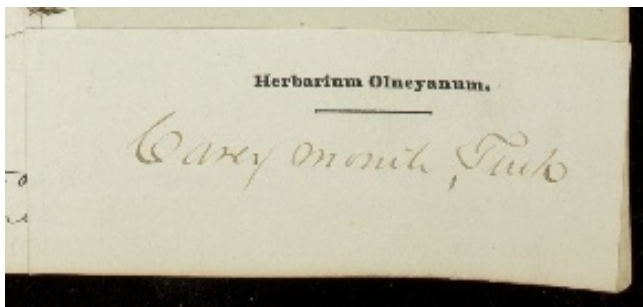 Herbarium Olneyanum.
Carex monile, Tuck